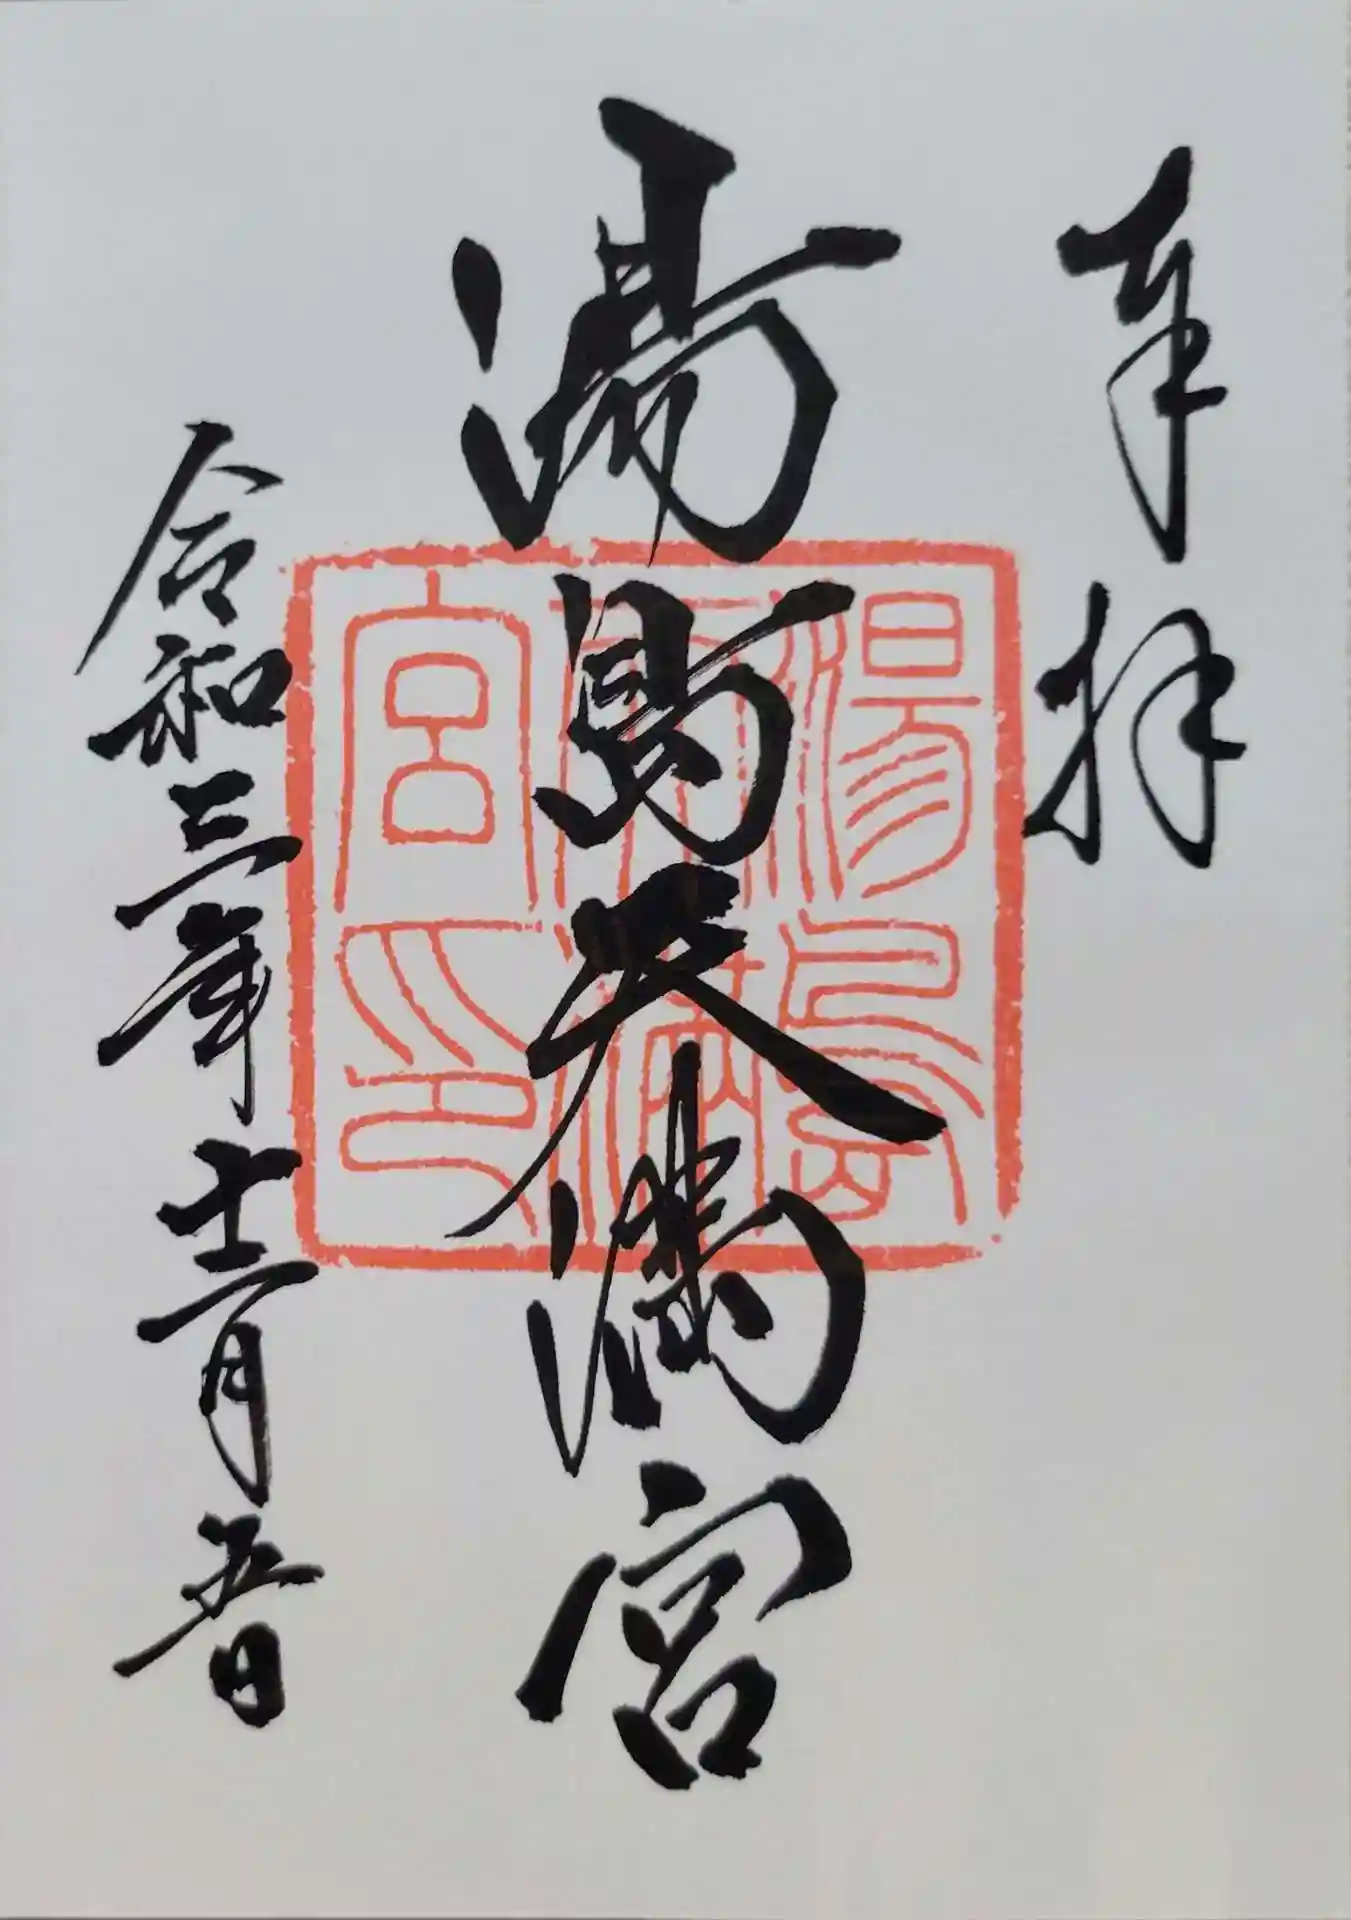 奉拝
湯島天満宮
令和三年十二月五日
湯島
天満
宮印